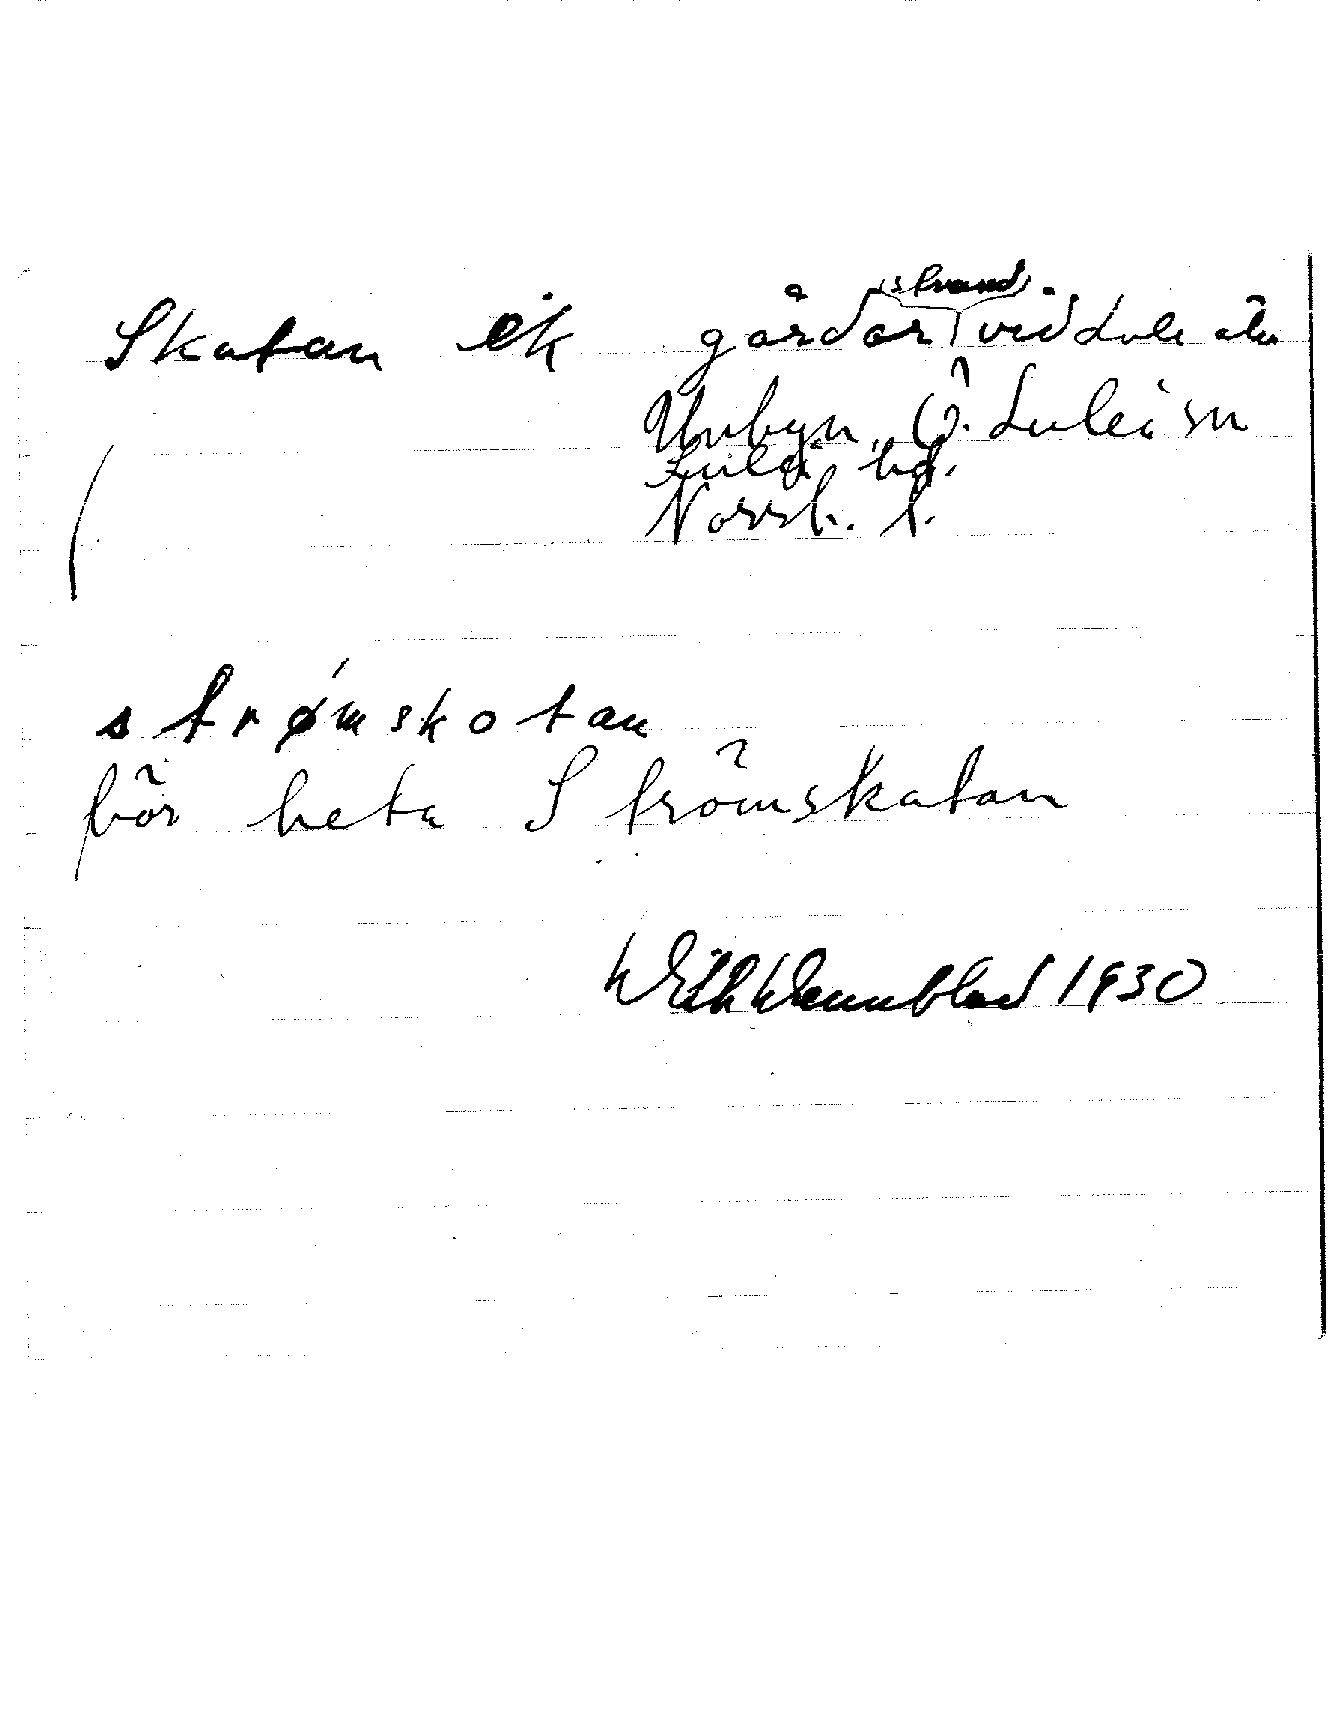 Skatan ek gårdar (strand) vid Lule älv
Unbyn, Ö. Luleå sn
Luleå hd.
Norrb. l.
strømskotan
bör heta Strömskatan
Wilh Wennblad 1930